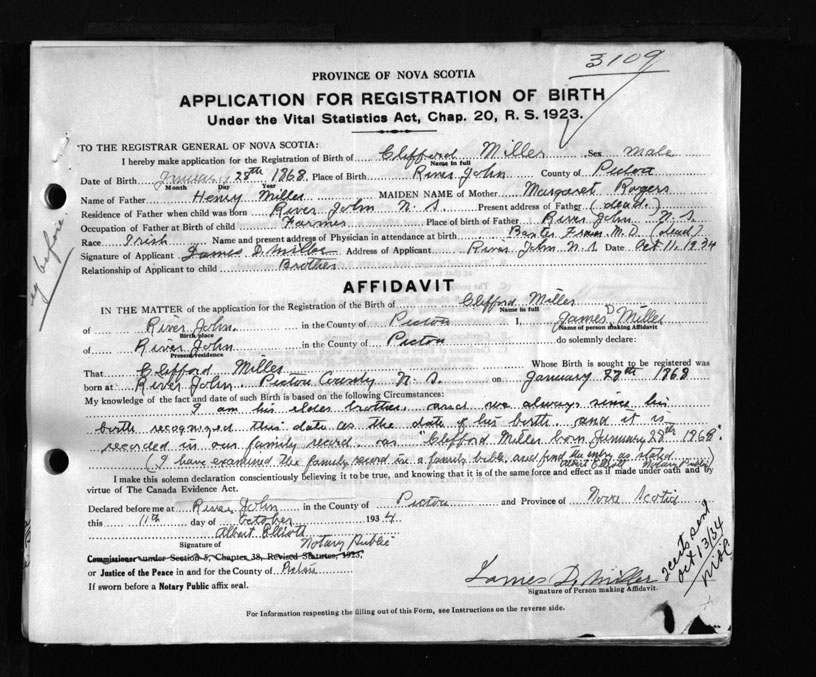 3109
PROVINCE OF NOVA SCOTIA
APPLICATION FOR REGISTRATION OF BIRTH
Under the Vital Statistics Act, Chap. 20, R. S. 1923.
TO THE REGISTRAR GENERAL OF NOVA SCOTIA:
I hereby make application for the Registration of Birth of Clifford Miller Sex Male
Name in full
Date of Birth January 28th 1868 Place of Birth River John County of Pictou
Month Day Year
Name of Father Henry Miller MAIDEN NAME of Mother Margaret Rogers
Residence of Father when child was born River John N. S. Present address of Father (dead.)
Occupation of Father at Birth of child Farmer Place of birth of Father River John N. S.
Race Irish Name and present address of Physician in attendance at birth M. D. (dead)
Signature of Applicant James D. Miller Address of Applicant River John N. S Date Oct 11, 1934
Relationship of Applicant to child Brother
eg before.
AFFIDAVIT
IN THE MATTER of the application for the Registration of the Birth of Clifford Miller
Name in full
of River John in the County of Pictou I, James D Miller
Birth place Name of person making Affidavit
of River John in the County of Pictou do solemnly declare:
Present residence
That Clifford Miller Whose Birth is sought to be registered was
born at River John, Pictou County N. S. on January 28th 1868
My knowledge of the fact and date of such Birth is based on the following Circumstances:
I am his elder brother and we always since his
birth recognized this date as the date of his birth. and it is
recorded in our family record. as "Clifford Miller born January 28th 1968".
(I have examined the family record in a family bible and find the entry as stated
Albert Elliott Notary Public)
I make this solemn declaration conscientiously believing it to be true, and knowing that it is of the same force and effect as if made under oath and by
virtue of The Canada Evidence Act.
Declared before me at River John in the County of Pictou and Province of Nova Scotia
this 11th day of October 1934
Albert Elliott
Signature of Notary Public
Commissioner under Section 8, Chapter 38, Revised Statutes, 1923,
or Justice of the Peace in and for the County of Pictou
If sworn before a Notary Public affix seal.
James D. Miller
Signature of Person making Affidavit.
2 certs sent
Oct 13/34
For Information respecting the filling out of this Form, see Instructions on the reverse side.